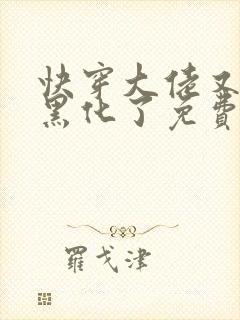 快穿大佬又
黑化了免費
羅戈津